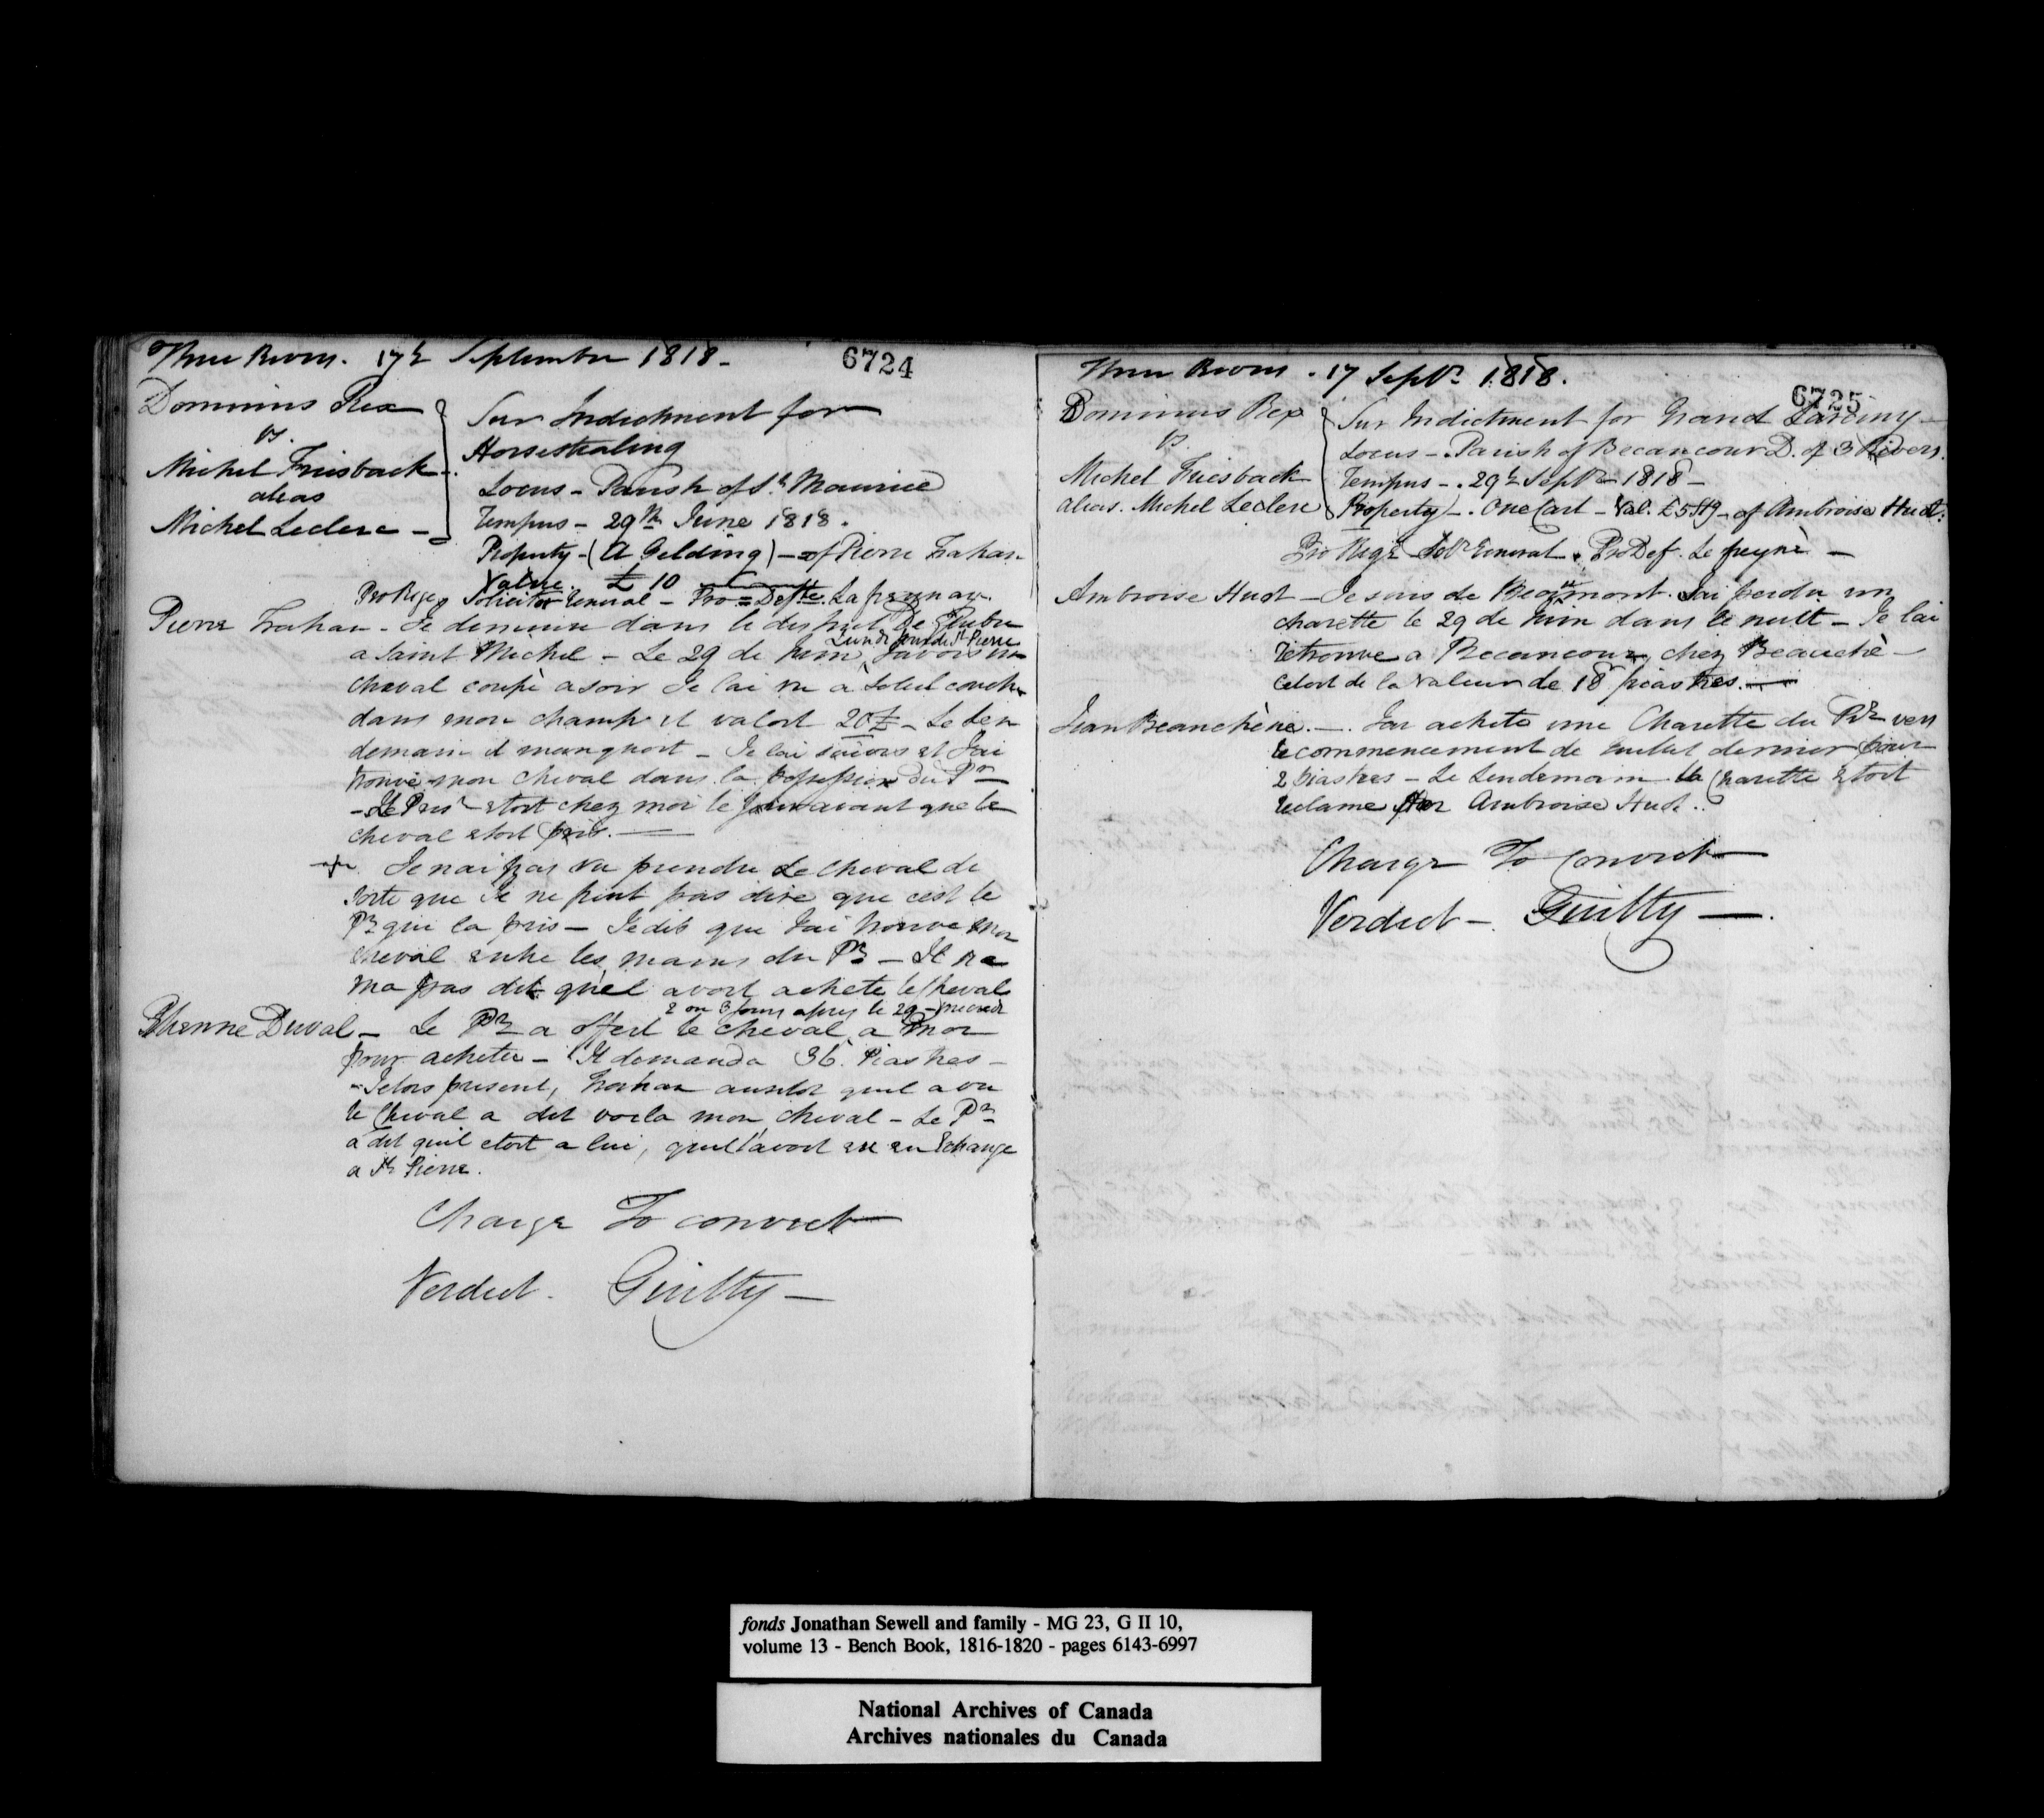 Three Rivers. 17th September 1818 -
6724
Dominus Rex
vs.
Michel Friesback -
alias
Michel Leclerc -
Sur Indictment for
Horsestealing
Locus - Parish of St. Maurice
Tempus - 29th June 1818.
Property - (A Gelding) - of Pierre Trahan
Value. £ 10
Pro Rege Solicitor General - Pro = Defte.
Pierre Trahan - Je demeure dans le district De Quebec
Lundi jour de St Pierre
a Saint Michel - Le 29 de Juin, Javois un
cheval coupè a soir Je lai vu à Soleil couche
dans mon champ il valoit 20£ - Le Len
demain il manquoit - Je lai suivis et Jai
trouvè mon cheval dans la possession du Pr
- Le Prisr etoit chez moi le Jour avant que le
cheval etoit pris. -
Je nai pas vu prendre Le cheval de
sorte que Je ne peut pas dire que cest le
Pr qui la pris - Je dit que Jai trouve mon
cheval entre les mains du Pr - Il na
ma pas dit qu'el avoit achete le Cheval
2 ou 3 jours apres le 29 -
Etienne Duval - Le Pr a offert le cheval a moi
pour acheter - Il demanda 36. Piastres -
- Jetois present, Trahan ausitot quil a vu
le Cheval a dit voila mon cheval - Le Pr
a dit quil etoit a lui, quil l'avoit eu en Echange
a St Pierre.
Charge To convict
Verdict - Guilty -
Three Rivers - 17 Septr 1818.
6725
Dominus Rex
vs
Michel Friesback
alias. Michel Leclerc
Sur Indictment for Grand Larceny -
Locus - Parish of Becancour D. of 3 Rivers.
Tempus - 29th Septr 1818 -
Property - One Cart - Val. £5 Stg - of Ambroise Huot.
Pro Rege Solr General. Pro Def.
Ambroise Huot - Je suis de Beaumont. Jai perdu un
charette le 29 de Juin dans le nuit - Je lai
retrouve a Becancour, chez Beauchè -
Cetoit de la valeur de 18 piastres. -
Jean Beauchène. - Jai achete une Charette du Pr vers
le commencement de Juillet dernier pour
2 Piastres - Le Lendemain la Charette etoit
reclame par Ambroise Huot.
Charge To Convict
Verdict - Guilty -
fonds Jonathan Sewell and family - MG 23, G II 10,
volume 13 - Bench Book, 1816-1820 - pages 6143-6997
National Archives of Canada
Archives nationales du Canada